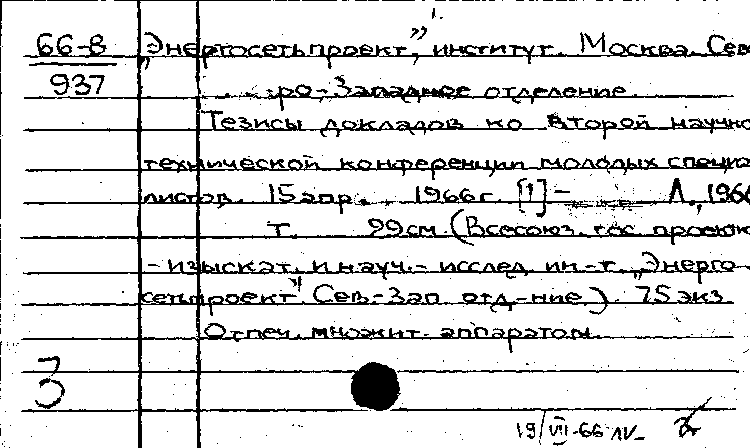 66-8
937
„Энергосетьпроект", институт. Москва. Сев
ро-Западное отделение.
Тезисы докладов ко второй научно
технической конференции молодых специа
листов. 15 апр. 1966 г. [1] – Л., 1966
т. 29 см. (Всесоюз. гос. проектн
-изыскат. и науч.-исслед. ин-т. „Энерго
сетьпроект" Сев-Зап. отд-ние). 75 экз
Отпеч. множит. аппаратом.
3
19/VII-66